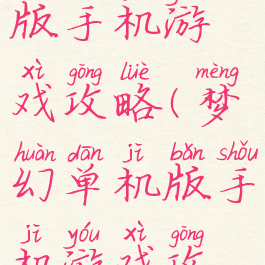 版手机游
xì gōng lüè mèng
戏攻略(梦
huàn dān jī bǎn shǒu
幻单机版手
jī yóu xì gōng
机游戏攻